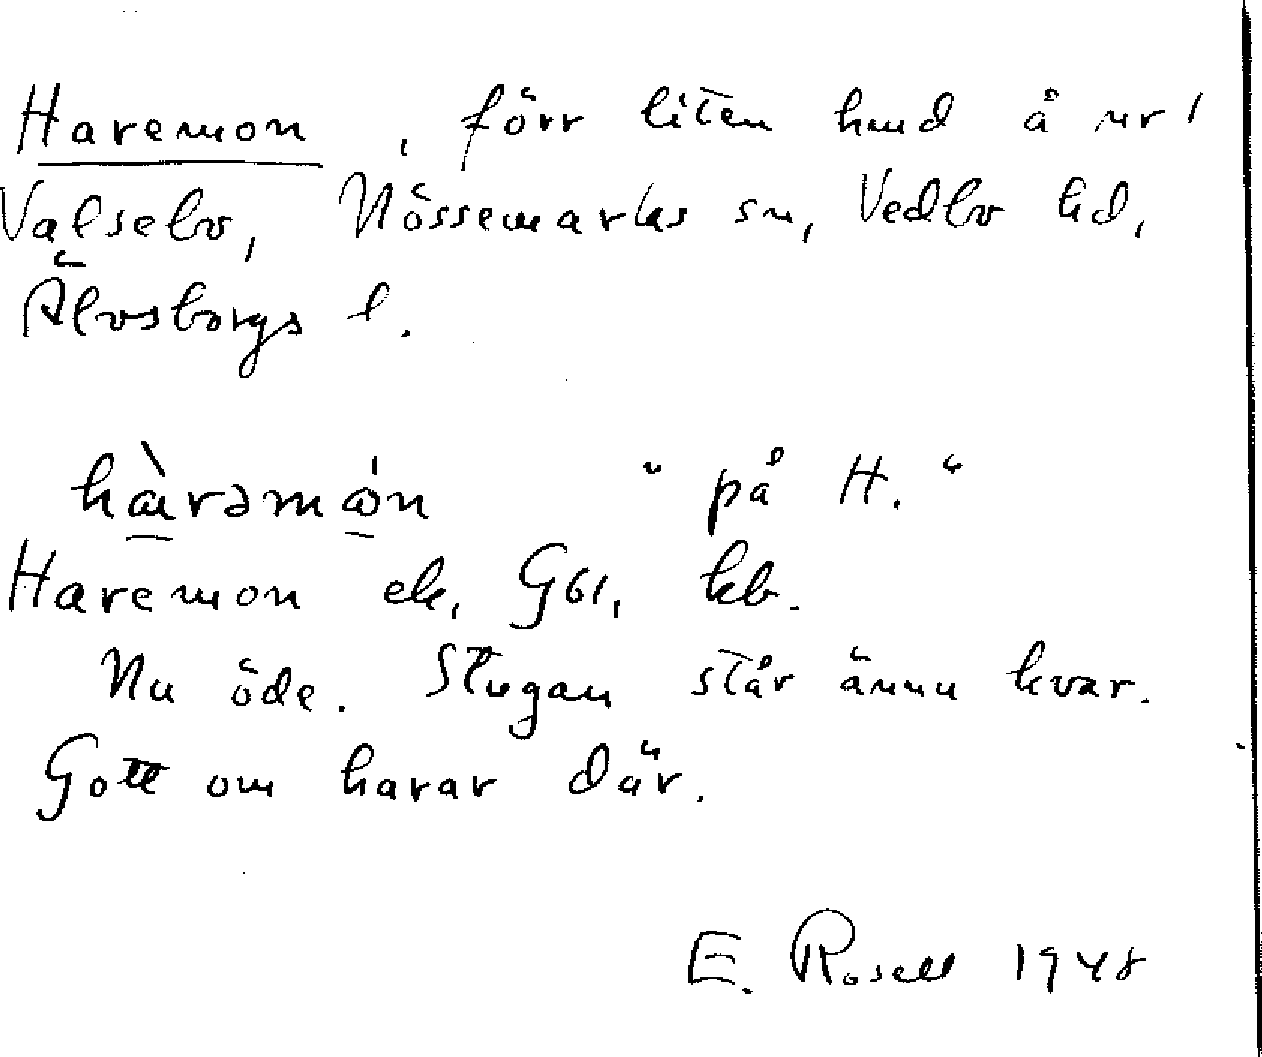 Haremon, förr liten hmd å nr 1
Valsebo, Nössemarks sn, Vedbo hd,
Älvsborgs l.
hàrəmón "på H."
Haremon ek, G61, kb.
Nu öde. Stugan står ännu kvar.
Gott om harar där.
E. Rosell 1948